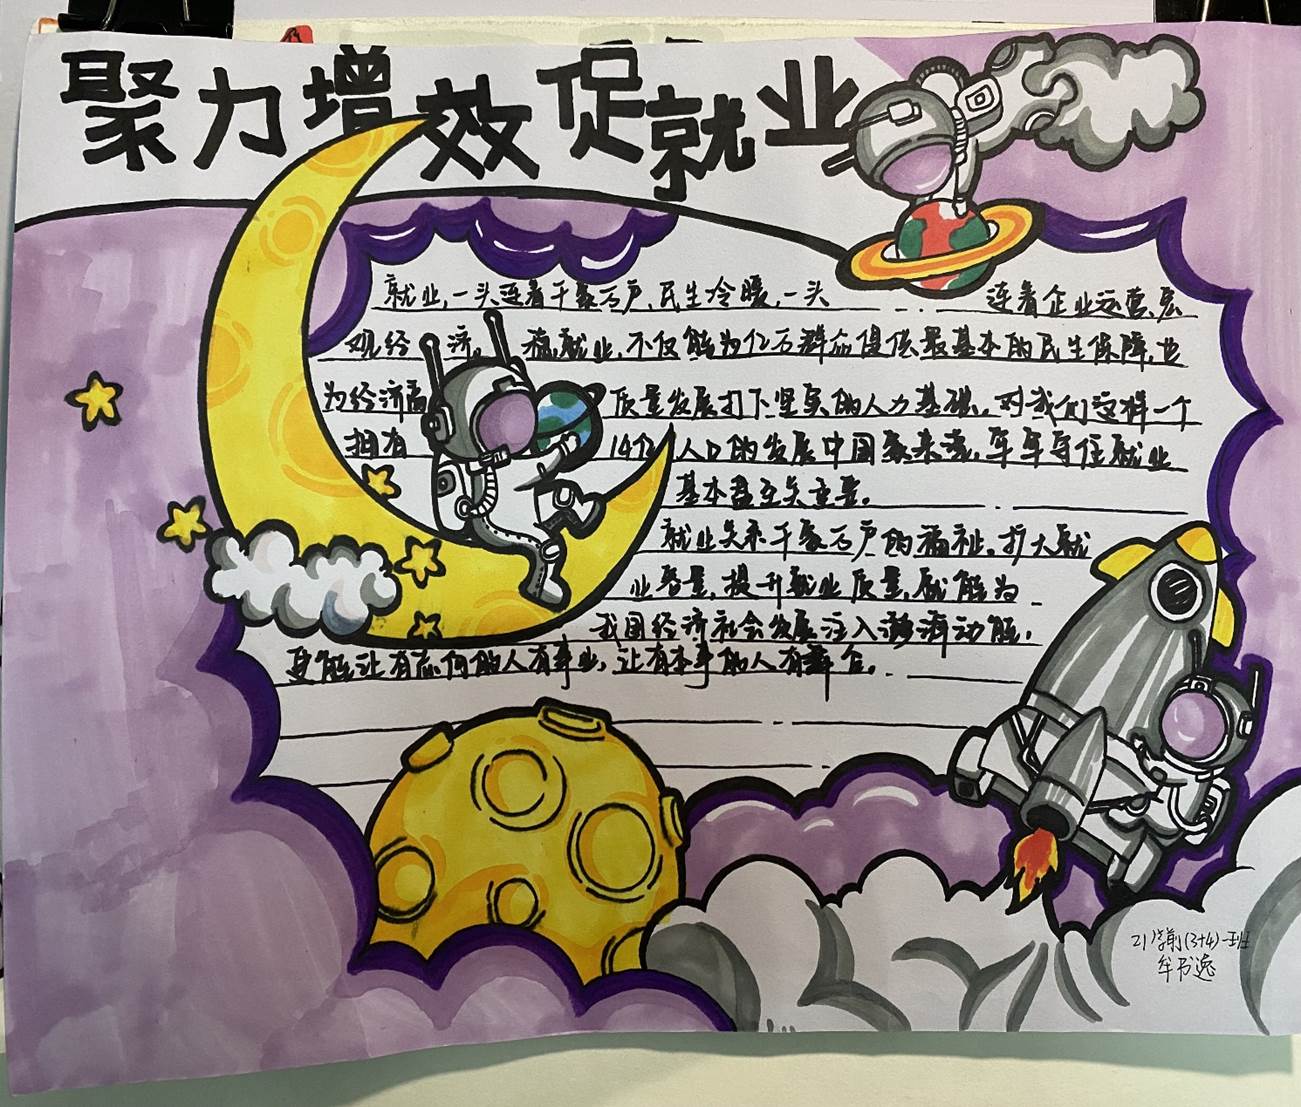 聚力增效促就业
就业,一头连着千家万户、民生冷暖,一头连着企业运营、宏
观经济。稳就业,不仅能为亿万群众提供最基本的民生保障,也
为经济高质量发展打下坚实的人力基础。对我们这样一个
拥有14亿人口的发展中国家来说,牢牢守住就业
基本盘至关重要。
就业关系千家万户的福祉。扩大就
业容量,提升就业质量,就能为
我国经济社会发展注入澎湃动能,
更能让有志向的人有事业,让有本事的人有舞台。
21学前(3+4)一班
牟书逸